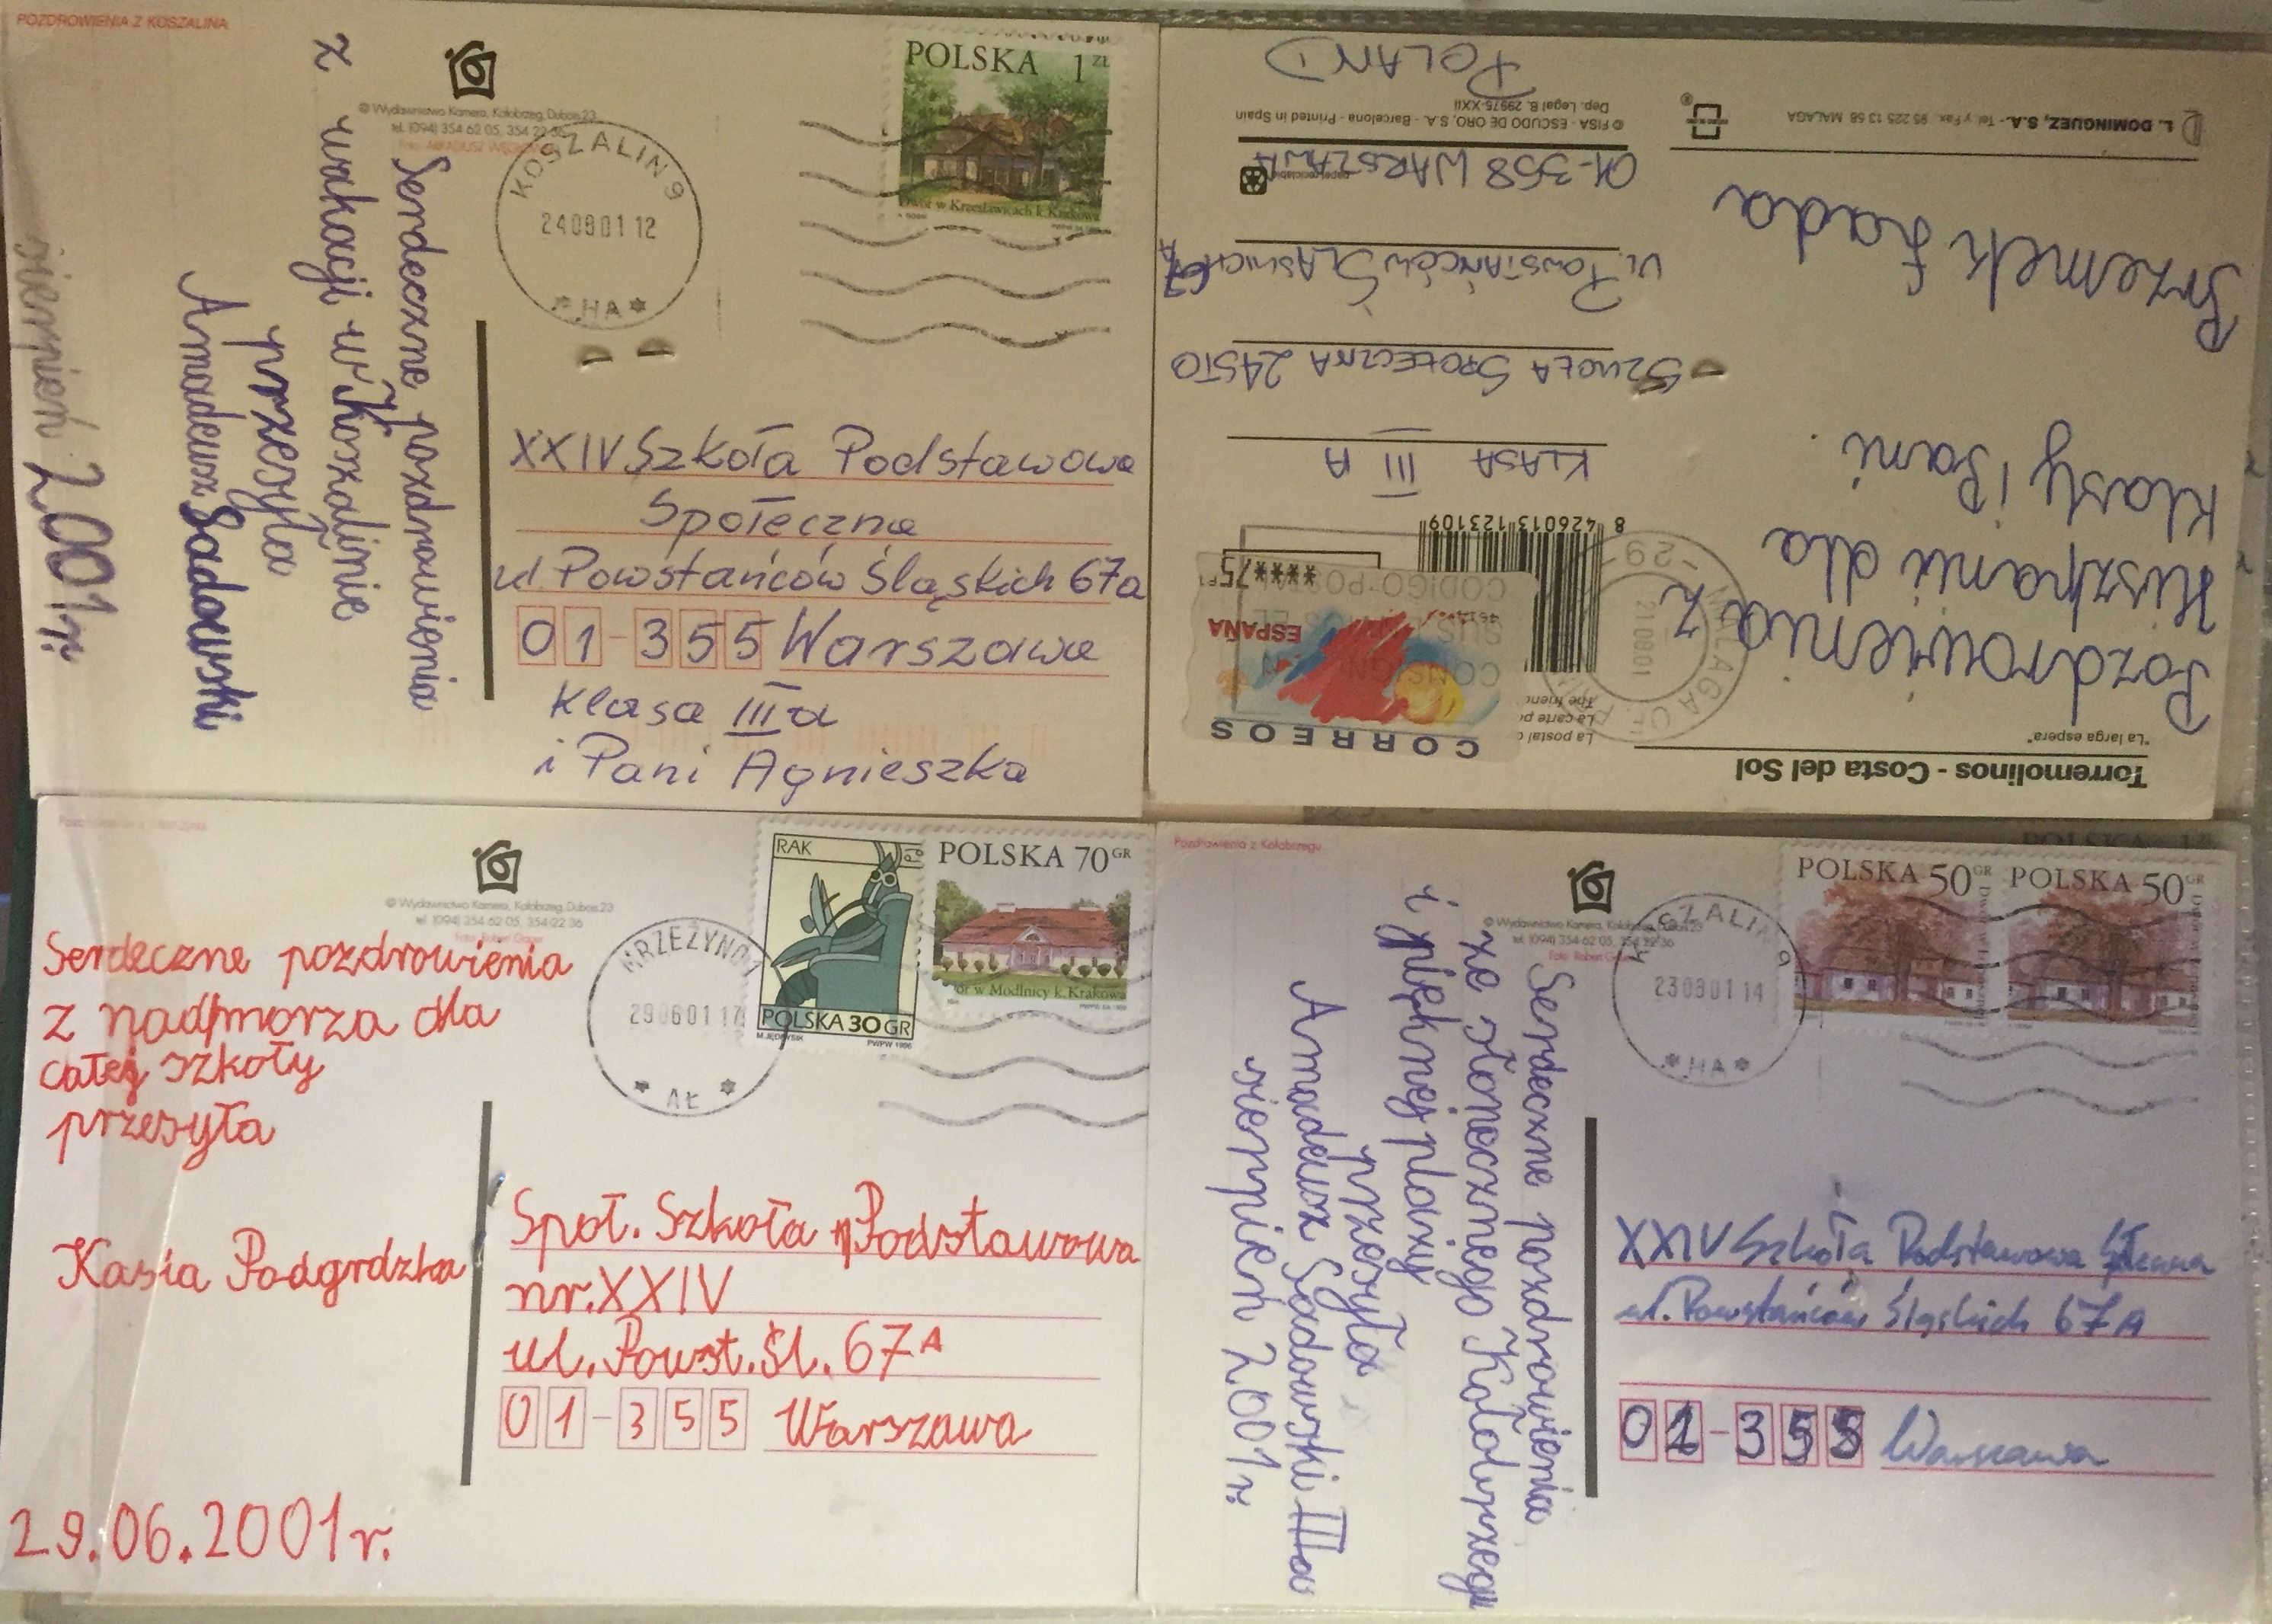 POZDROWIENIA Z KOSZALINA
© Wydawnictwo Kamera, Kołobrzeg, Dubois 23
tel. (094) 354 62 05, 354 22 36
POLSKA 1 ZŁ
Dwór w Krzesławicach k. Krakowa
KOSZALIN 9
240801 12
* HA *
Serdeczne pozdrowienia
z wakacji w Koszalinie
przesyła
Amadeusz Sadowski
sierpień 2001r.
XXIV Szkoła Podstawowa
Społeczna
ul. Powstańców Śląskich 67a
01-355 Warszawa
Klasa III a
i Pani Agnieszka
Torremolinos - Costa del Sol
"La larga espera"
Pozdrowienia z
Hiszpanii dla
Klasy i Pani.
Przemek Łada
L. DOMINGUEZ, S.A. - Tel. y Fax. 95 225 13 58 MALAGA
CORREOS
ESPAÑA
****75
210801
-29-
8 426013 123109
KLASA III A
SZKOŁA SPOŁECZNA 24STO
UL. POWSTAŃCÓW ŚLĄSKICH 67A
01-358 WARSZAWA
papel reciclable
© FISA - ESCUDO DE ORO, S.A. - Barcelona - Printed in Spain
Dep. Legal B. 29975-XXII
POLAND
© Wydawnictwo Kamera, Kołobrzeg, Dubois 23
tel. (094) 354 62 05, 354 22 36
RAK
POLSKA 30 GR
PWPW 1996
POLSKA 70 GR
Dwór w Modlnicy k. Krakowa
MRZEŻYNO 1
290601 17
* AŁ *
Serdeczne pozdrowienia
z nadmorza dla
całej szkoły
przesyła
Kasia Podgrdzka
29.06.2001r.
Społ. Szkoła Podstawowa
nr. XXIV
ul. Powst. Śl. 67A
01-355 Warszawa
Pozdrowienia z Kołobrzegu
© Wydawnictwo Kamera, Kołobrzeg, Dubois 23
tel. (094) 354 62 05, 354 22 36
POLSKA 50 GR
POLSKA 50 GR
KOSZALIN 9
230801 14
* HA *
Serdeczne pozdrowienia
ze słonecznego Kołobrzegu
i pięknej plaży
przesyła
Amadeusz Sadowski IIIa
sierpień 2001r.
XXIV Szkoła Podstawowa
ul. Powstańców Śląskich 67A
01-355 Warszawa